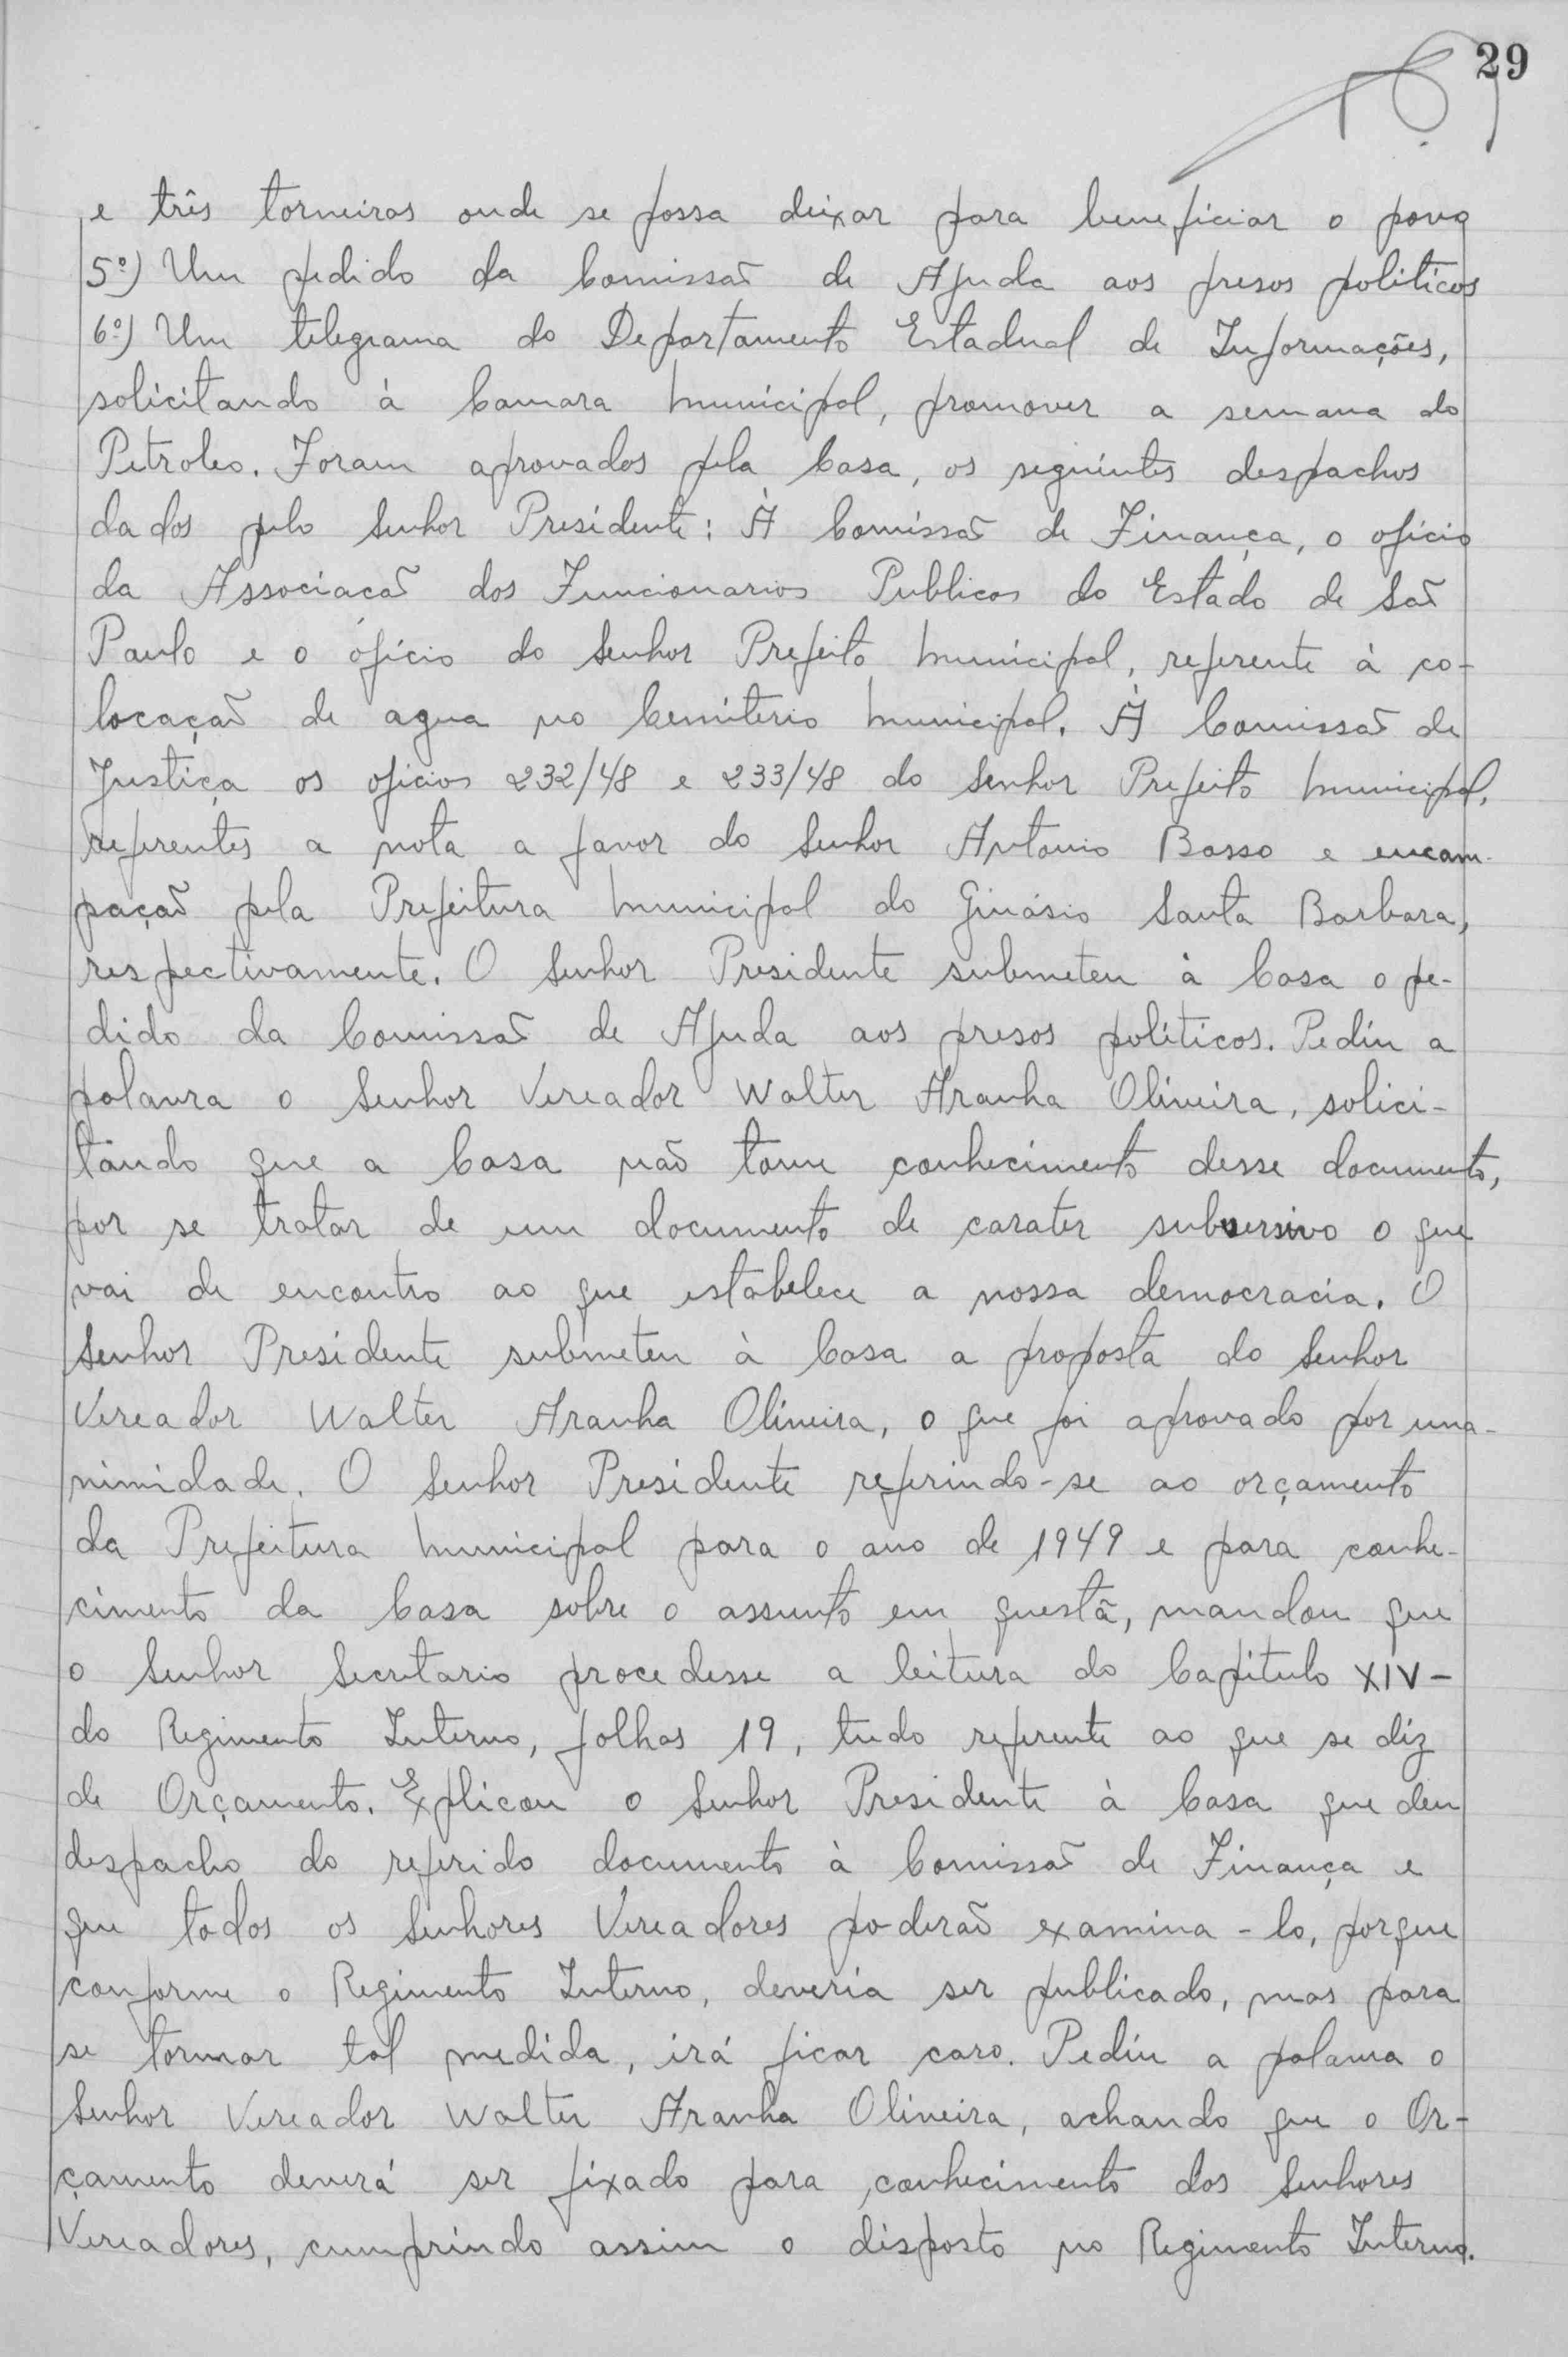 29
e três torneiras onde se possa deixar para beneficiar o povo
5º) Um pedido da Comissão de Ajuda aos presos politicos
6º) Um telegrama do Departamento Estadual de Informações,
solicitando à Camara Municipal, promover a semana do
Petroleo. Foram aprovados pela Casa, os seguintes despachos
dados pelo Senhor Presidente: À Comissão de Finança, o oficio
da Associação dos Funcionarios Publicos do Estado de São
Paulo e o ofício do Senhor Prefeito Municipal, referente à co-
locação de agua no Cemiterio Municipal. À Comissão de
Justiça os oficios 232/48 e 233/48 do Senhor Prefeito Municipal,
referentes a nota a favor do Senhor Antonio Basso e encam-
pação pela Prefeitura Municipal do Ginásio Santa Barbara,
respectivamente. O Senhor Presidente submeteu à Casa o pe-
dido da Comissão de Ajuda aos presos políticos. Pediu a
palavra o Senhor Vereador Walter Aranha Oliveira, solici-
tando que a Casa não tome conhecimento desse documento,
por se tratar de um documento de carater subversivo o que
vai de encontro ao que estabelece a nossa democracia. O
Senhor Presidente submeteu à Casa a proposta do Senhor
Vereador Walter Aranha Oliveira, o que foi aprovado por una-
nimidade. O Senhor Presidente referindo-se ao orçamento
da Prefeitura Municipal para o ano de 1949 e para conhe-
cimento da Casa sobre o assunto em questã, mandou que
o Senhor Secretario procedesse a leitura do Capitulo XIV-
do Regimento Interno, folhas 19, tudo referente ao que se diz
de Orçamento. Explicou o Senhor Presidente à Casa que deu
despacho do referido documento à Comissão de Finança e
que todos os Senhores Vereadores poderão examina-lo, porque
conforme o Regimento Interno, deveria ser publicado, mas para
se tormar tal medida, irá ficar caro. Pediu a palavra o
Senhor Vereador Walter Aranha Oliveira, achando que o Or-
çamento deverá ser fixado para conhecimento dos Senhores
Vereadores, cumprindo assim o disposto no Regimento Interno.